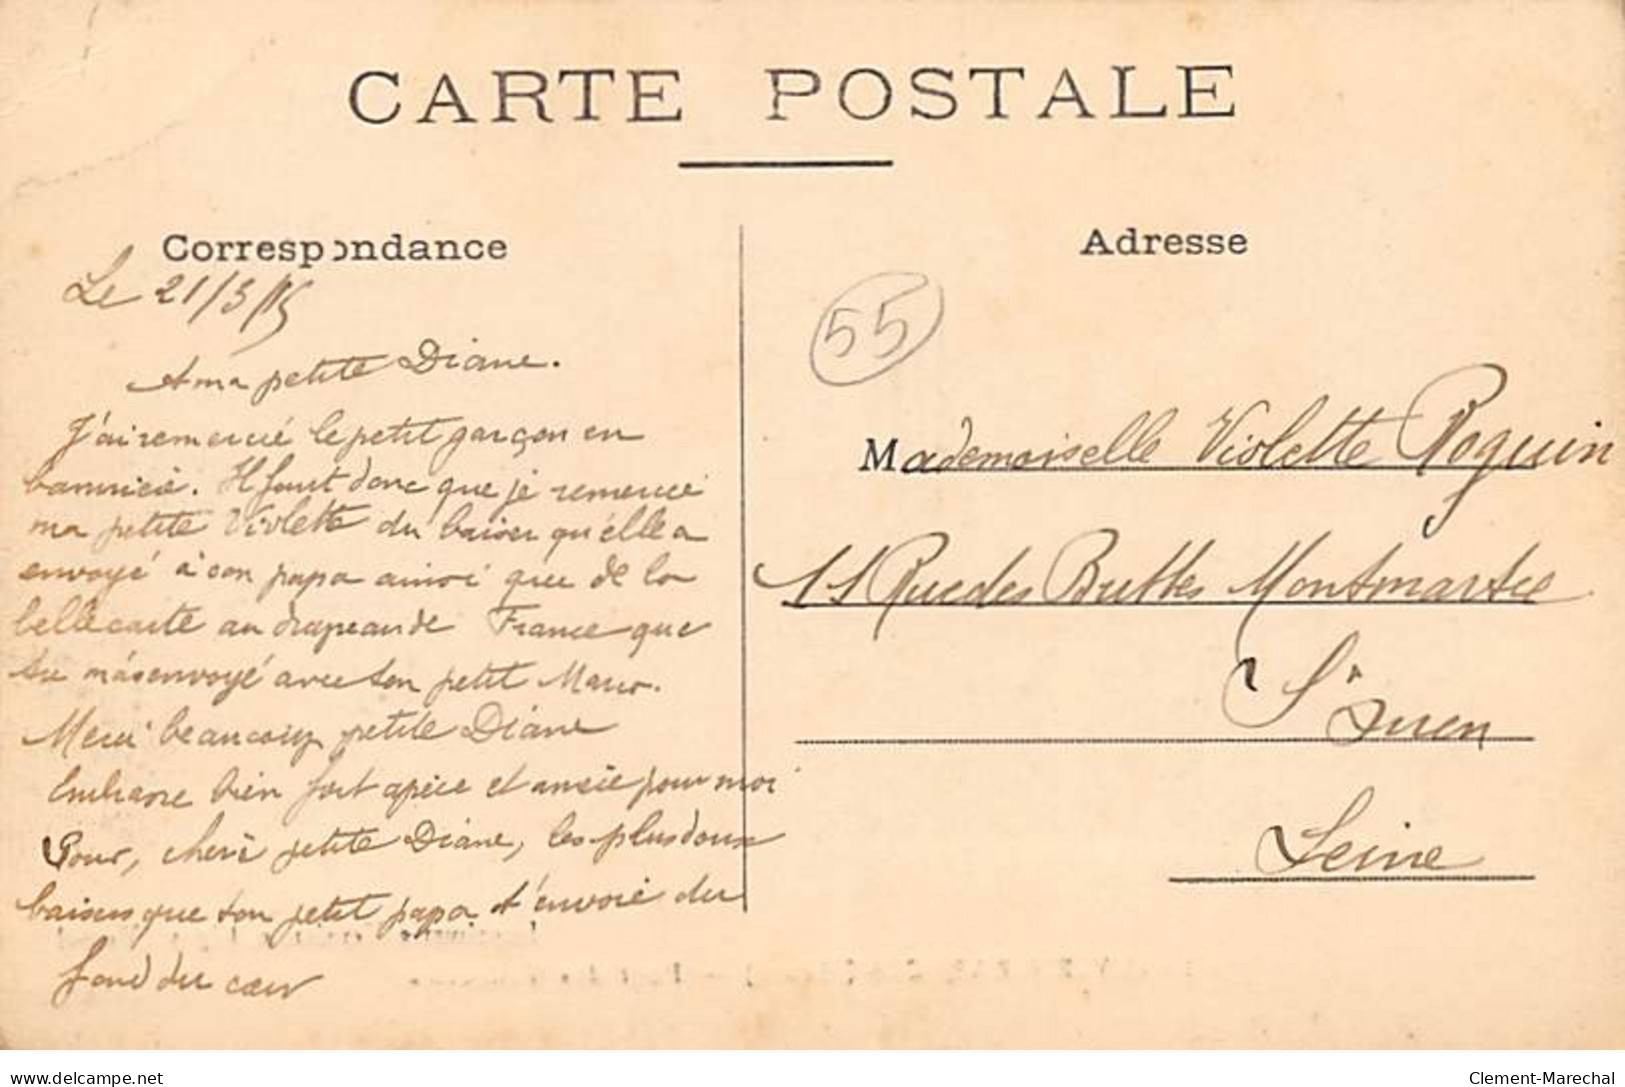 CARTE POSTALE
Correspondance
Adresse
Le 21/3/15
55
A ma petite Diane.
J'ai remercié le petit garçon en
Il faut donc que je remercie
ma petite Violette du baiser qu'elle a
envoyé à son papa ainsi que de la
belle carte au drapeau de France que
tu m'as envoyé avec ton petit
Merci beaucoup petite Diane
Embrasse bien fort et pour moi
Pour, chère petite Diane, les plus doux
baisers que ton petit papa t'envoie du
fond du cœur
Mademoiselle Violette Roguin
11 Rue des Buttes Montmartre
St Ouen
Seine
delcampe.net
Clement-Marechal